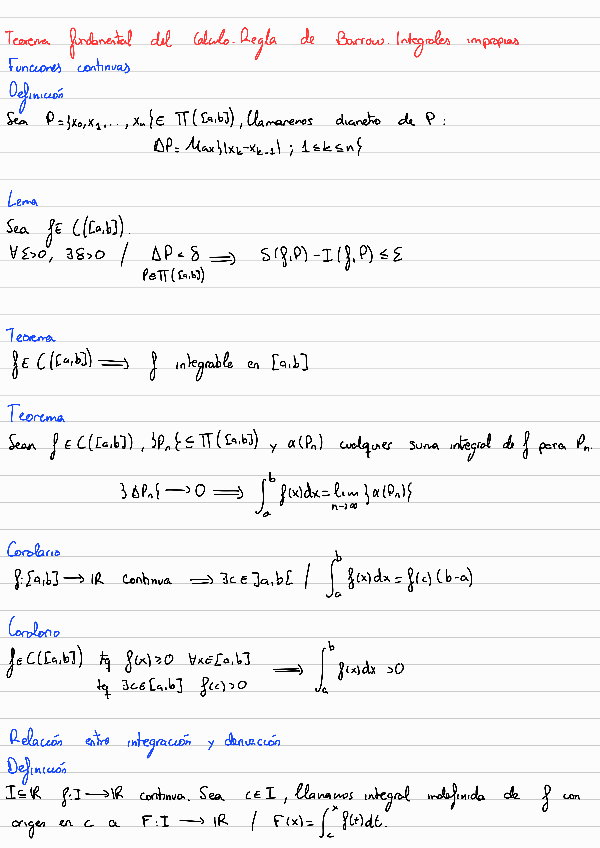 Teorema fundamental del Cálculo. Regla de Barrow. Integrales impropias
Funciones continuas
Definición
Sea P={x₀,x₁,...,xₙ}∈ Π([a,b]), llamaremos diametro de P:
ΔP= Max{|xₖ-xₖ₋₁| ; 1≤k≤n}
Lema
Sea f∈ C([a,b]).
∀ε>0, ∃δ>0 / ΔP<δ ⟹ S(f,P)-I(f,P)≤ε
P∈Π([a,b])
Teorema
f∈ C([a,b]) ⟹ f integrable en [a,b]
Teorema
Sean f∈C([a,b]), {Pₙ}⊆Π([a,b]) y α(Pₙ) cualquier suma integral de f para Pₙ.
{ΔPₙ}→0 ⟹ ∫ₐᵇ f(x)dx = lim n→∞ {α(Pₙ)}
Corolario
f:[a,b]→ℝ continua ⟹ ∃c∈]a,b[ / ∫ₐᵇ f(x)dx = f(c)(b-a)
Corolario
f∈C([a,b]) tq f(x)≥0 ∀x∈[a,b] ⟹ ∫ₐᵇ f(x)dx >0
tq ∃c∈[a,b] f(c)>0
Relación entre integración y derivación
Definición
I⊆ℝ f:I→ℝ continua. Sea c∈I, llamamos integral indefinida de f con
origen en c a F:I→ℝ / F(x)=∫_c^x f(t)dt.